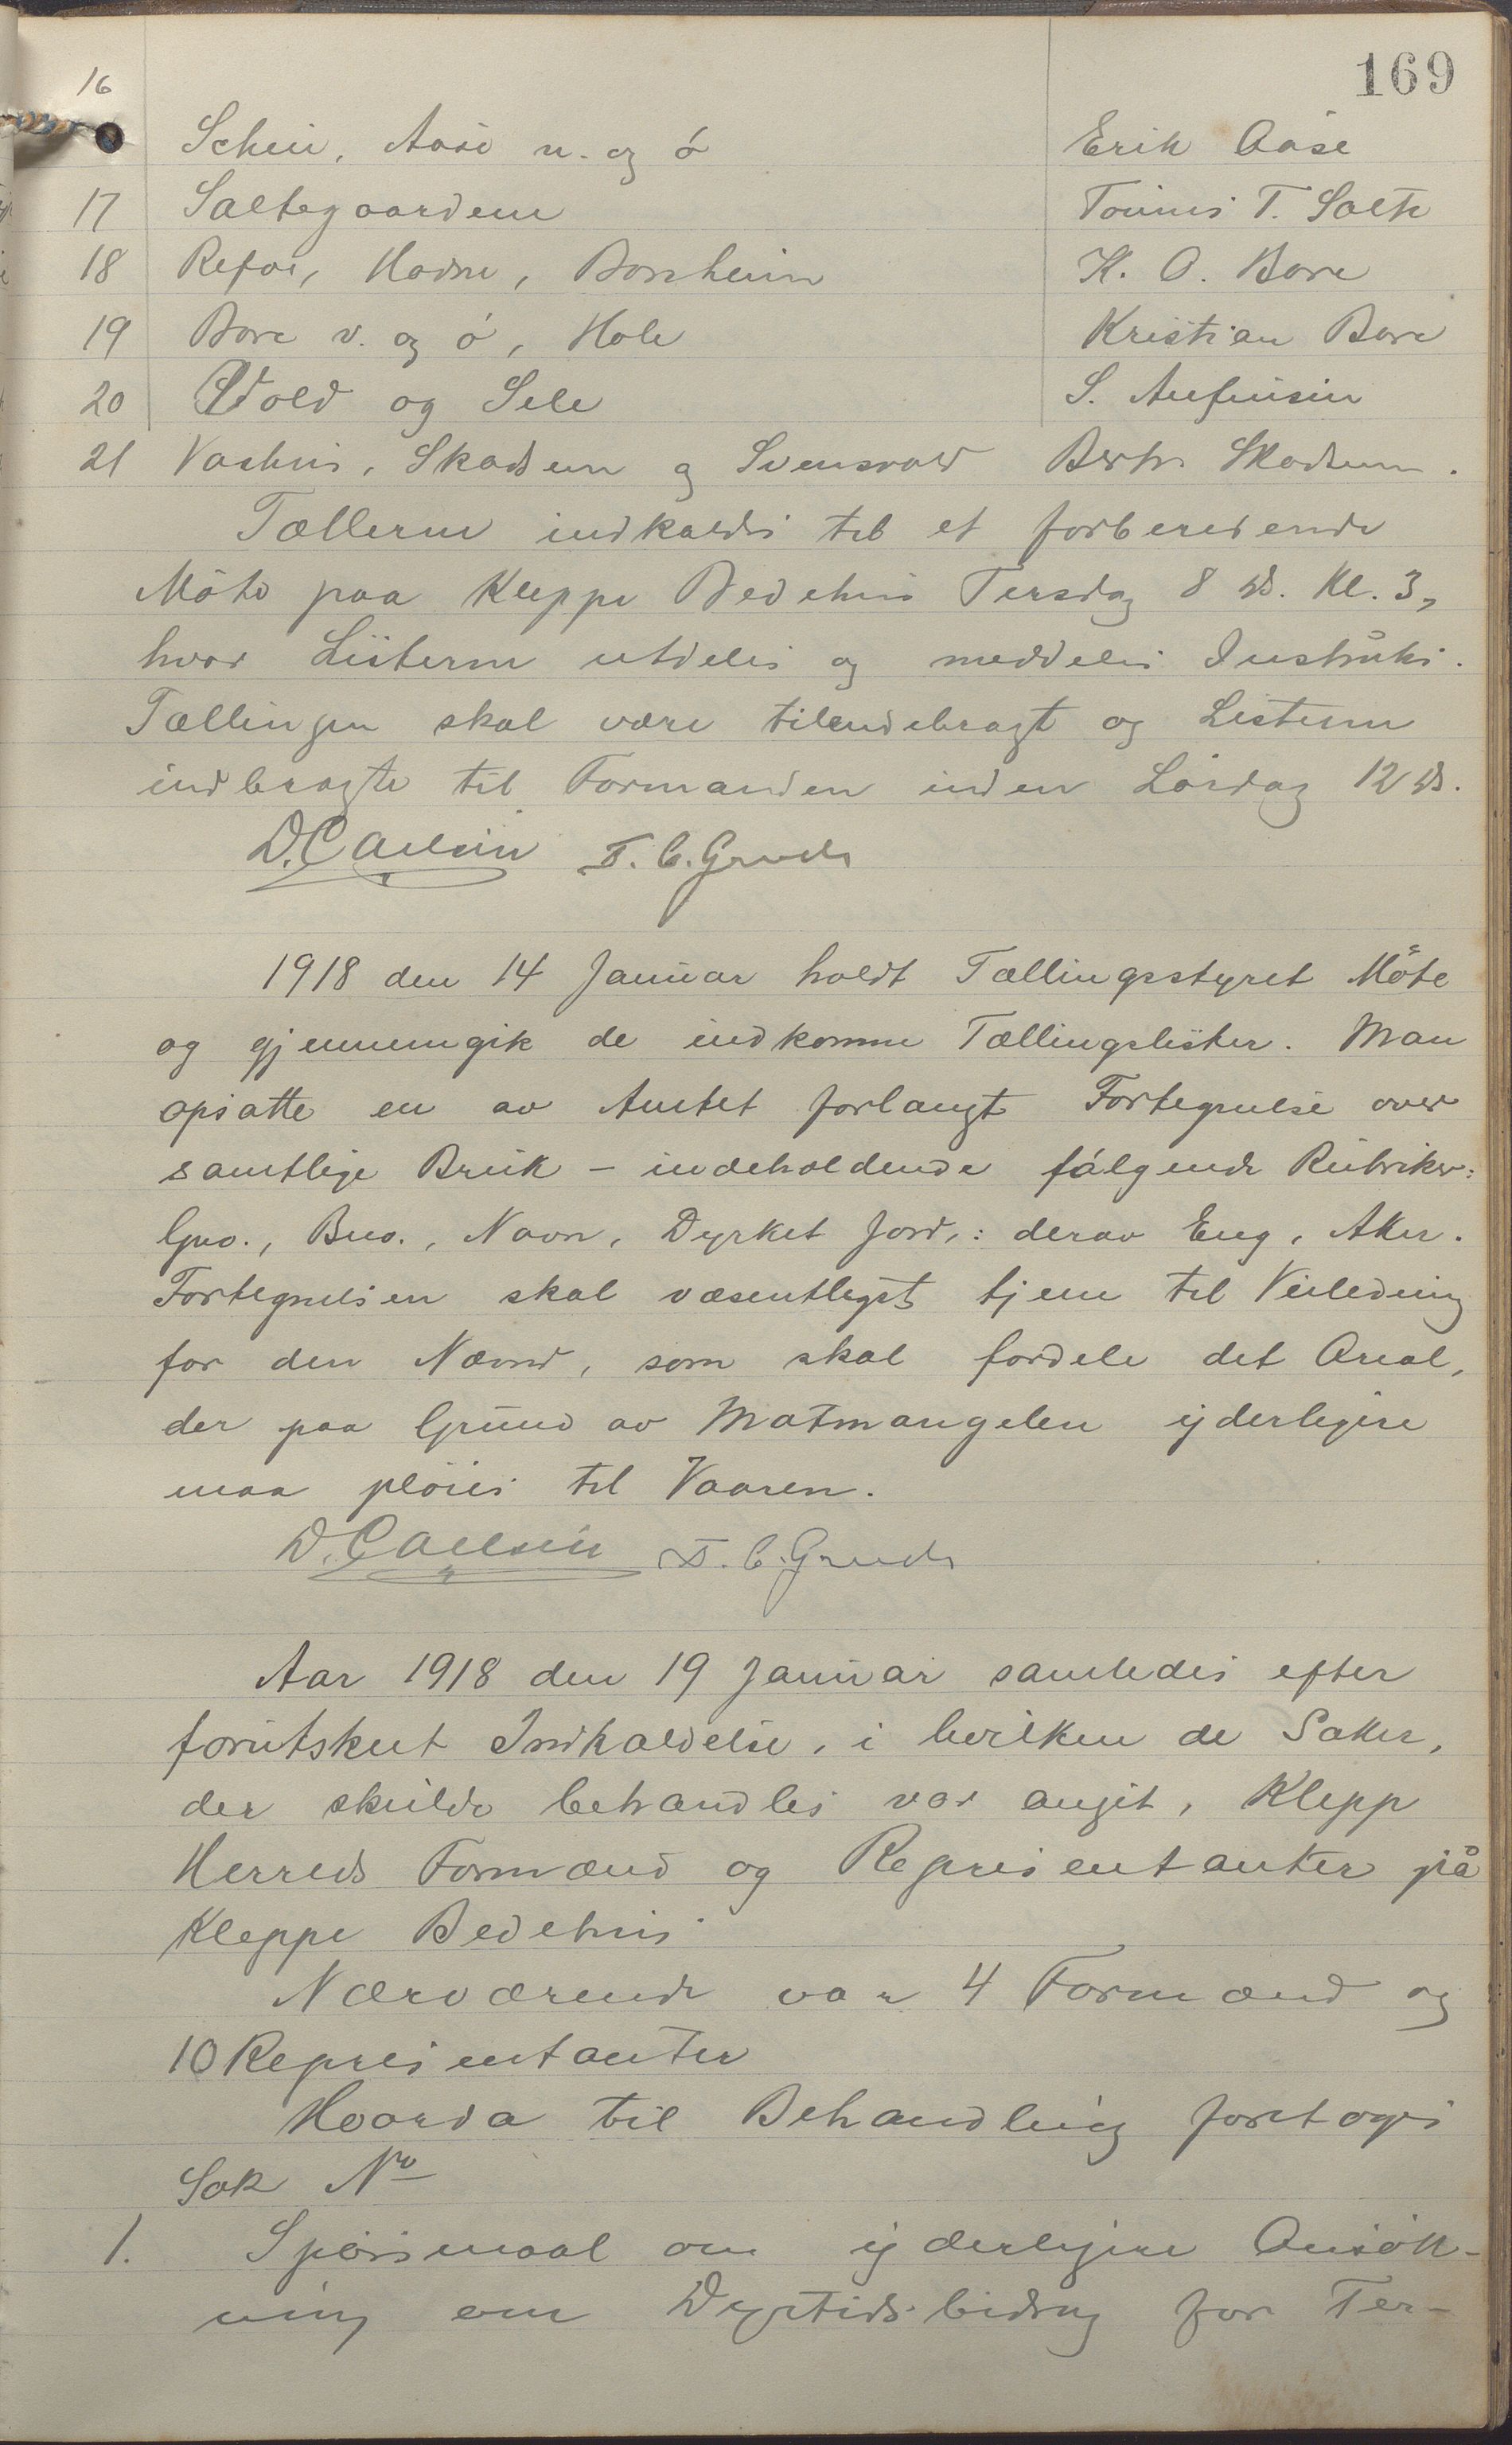 169
16 Schei, Aase n. og ö Erik Aase
17 Saltegaardene Tönnes T. Salte
18 Refve, Hodne, Borsheim K. O. Bore
19 Bore v. og ö, Hole Kristian Bore
20 Vold og Sele S. Anfinsen
21 Vashus, Skadsem og Svensvold Berh. Skadsem.
Tællerne indkaldes til et forberedende
Möte paa Kleppe Bedehus Tirsdag 8 ds. Kl. 3,
hvor Listerne utdeles og meddeles Instruks.
Tællingen skal være tilendebragt og Listerne
indbragte til Formanden inden Lördag 12 ds.
D. Carlsen T. C. Grude
1918 den 14 Januar holdt Tællingsstyret Möte
og gjennemgik de indkomne Tællingslister. Man
opsatte en av Amtet forlangt Fortegnelse over
samtlige Bruk - indeholdende fölgende Rubriker:
Gno., Bno., Navn, Dyrket Jord,: derav Eng, Aker.
Fortegnelsen skal væsentligst tjene til Veiledning
for den Nævnd, som skal fordele det Areal,
der paa Grund av Matmangelen yderligere
maa plöies til Vaaren.
D. Carlsen T. C. Grude
Aar 1918 den 19 Januar samledes efter
forutskut Indkaldelse, i hvilken de Saker,
der skulde behandles var angit, Klepp
Herreds Formænd og Representanter på
Kleppe Bedehus
Nærværende var 4 Formænd og
10 Representanter
Hvorda til Behandling foretoges
Sak No
1. Spörsmaal om yderligere Ansök-
ning om Dyrtidsbidrag for Ter-